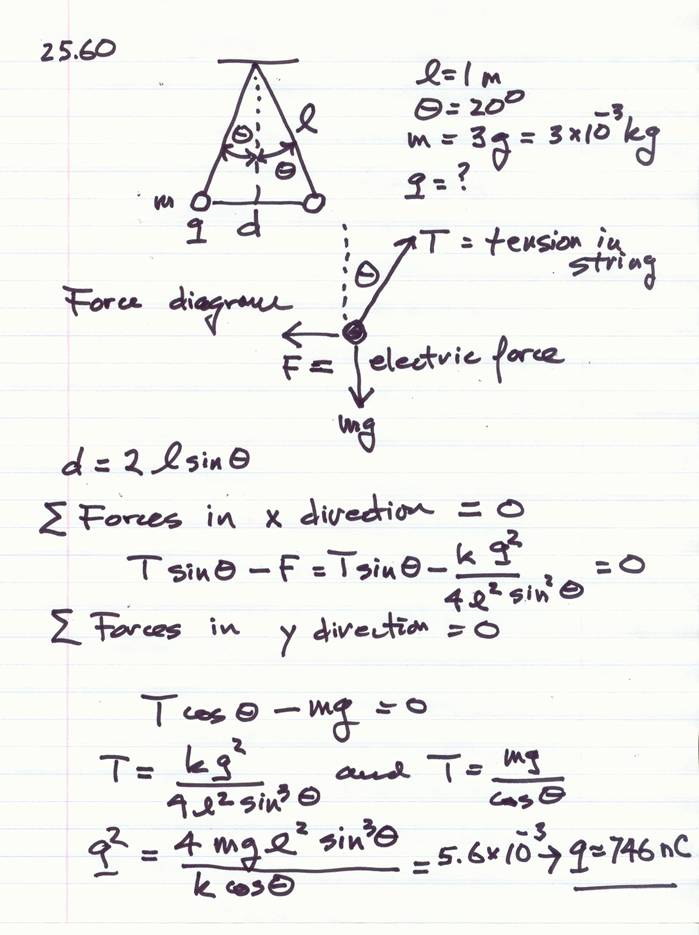 25.60
l = 1 m
θ = 20°
m = 3g = 3×10⁻³ kg
q = ?
θ
l
θ
m
q
d
T = tension in string
θ
Force diagram
F = electric force
mg
d = 2 l sin θ
Σ Forces in x direction = 0
T sin θ − F = T sin θ − k q² / 4 l² sin² θ = 0
Σ Forces in y direction = 0
T cos θ − mg = 0
T = k q² / 4 l² sin³ θ and T = mg / cos θ
q² = 4 mg l² sin³ θ / k cos θ = 5.6×10⁻³ → q = 746 nC